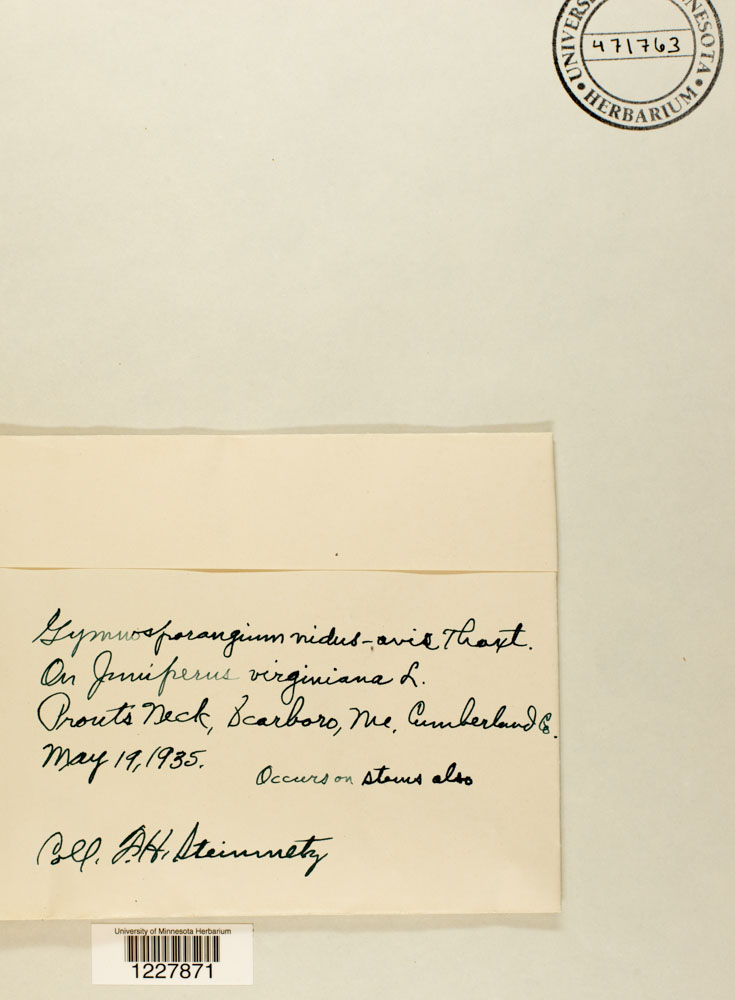 UNIVERS NNESOTA
471763
• HERBARIUM •
Gymnosporangium nidus-avis Thaxt.
On Juniperus virginiana L.
Prouts Neck, Scarboro, Me. Cumberland Co.
May 19, 1935.
Occurs on stems also
Coll. F.H. Steinmetz
University of Minnesota Herbarium
1227871